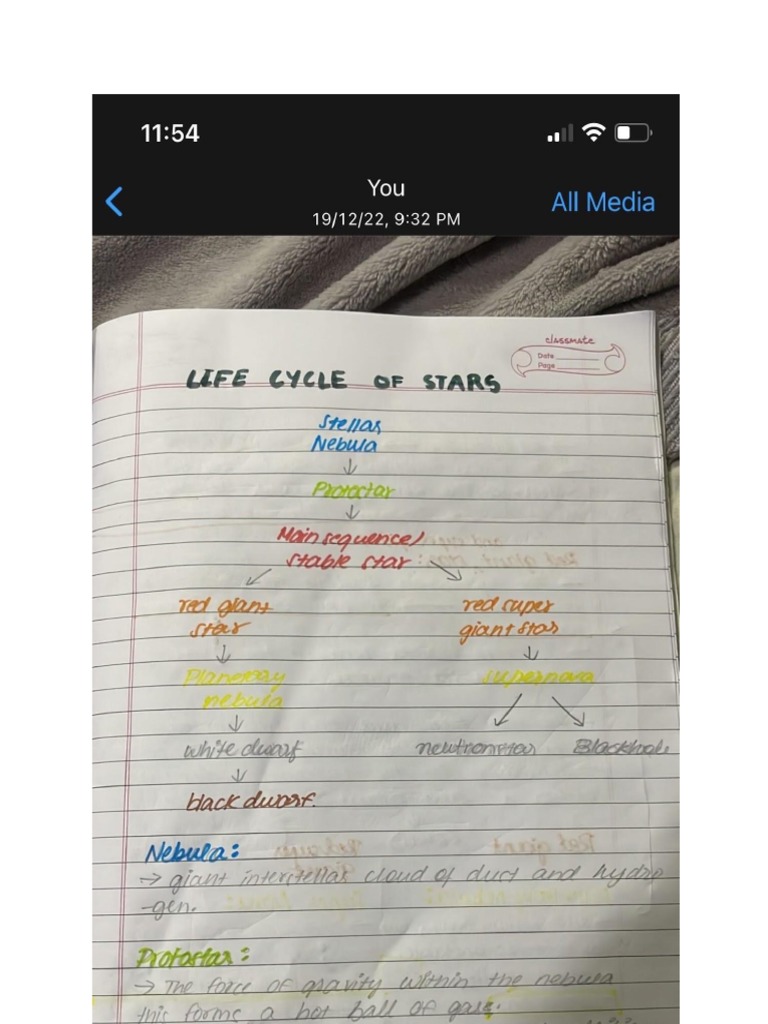 11:54
You
19/12/22, 9:32 PM
All Media
classmate
Date
Page
LIFE CYCLE OF STARS
Stellar
Nebula
↓
Protostar
↓
Main sequence/
stable star
red giant
star
red super
giant star
↓
↓
Planetary
nebula
supernova
↓
white dwarf
neutron star
Blackhole
↓
black dwarf.
Nebula:
→ giant interstellar cloud of dust and hydro
-gen.
Protostar:
→ The force of gravity within the nebula
this forms a hot ball of gase.